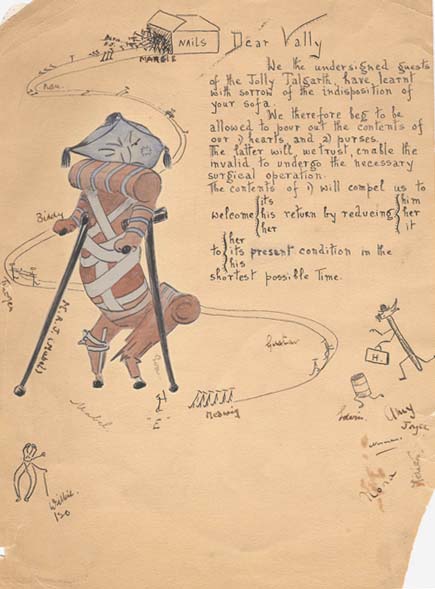 NAILS
MARGIE
Dear Vally
We the undersigned guests
of the Jolly Talgarth, have learnt
with sorrow of the indisposition of
your sofa.
We therefore beg to be
allowed to pour out the contents of
our 1) hearts, and 2) purses.
The latter will, we trust, enable the
invalid to undergo the necessary
surgical operation.
The contents of 1) will compel us to
welcome { its his her return by reducing { him her it
to { her its his present condition in the
shortest possible Time.
Biddy
Gustav
Hedwig
Mandel
"E"
H
Edwin
Amy
Joyce
Nora
Willie